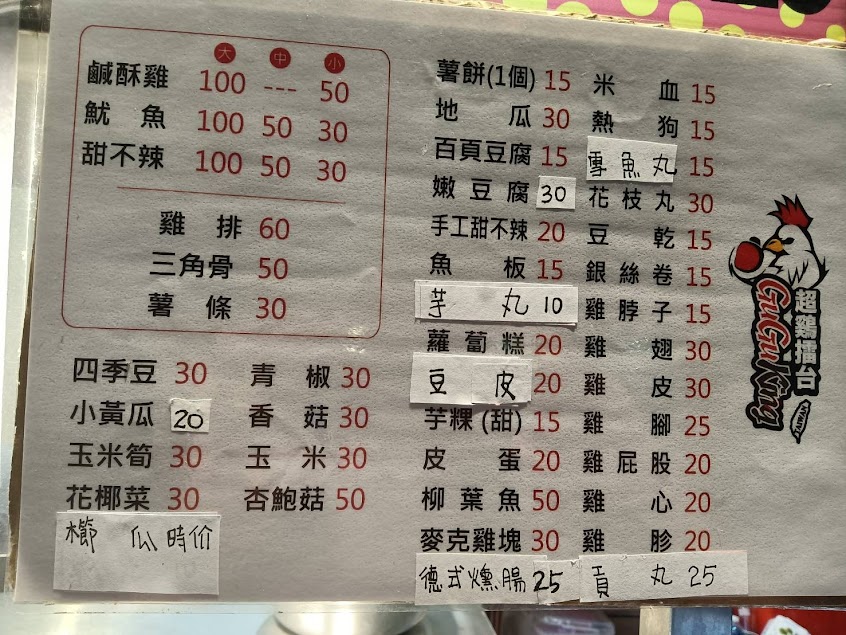 大 中 小
鹹酥雞 100 --- 50
魷魚 100 50 30
甜不辣 100 50 30
雞排 60
三角骨 50
薯條 30
四季豆 30
小黃瓜 20
玉米筍 30
花椰菜 30
櫛瓜時价
青椒 30
香菇 30
玉米 30
杏鮑菇 50
薯餅(1個) 15
地瓜 30
百頁豆腐 15
嫩豆腐 30
手工甜不辣 20
魚板 15
芋丸 10
蘿蔔糕 20
豆皮 20
芋粿(甜) 15
皮蛋 20
柳葉魚 50
麥克雞塊 30
德式燻腸 25
米血 15
熱狗 15
雪魚丸 15
花枝丸 30
豆乾 15
銀絲卷 15
雞脖子 15
雞翅 30
雞皮 30
雞腳 25
雞屁股 20
雞心 20
雞胗 20
貢丸 25
超雞擂台
GuGu King